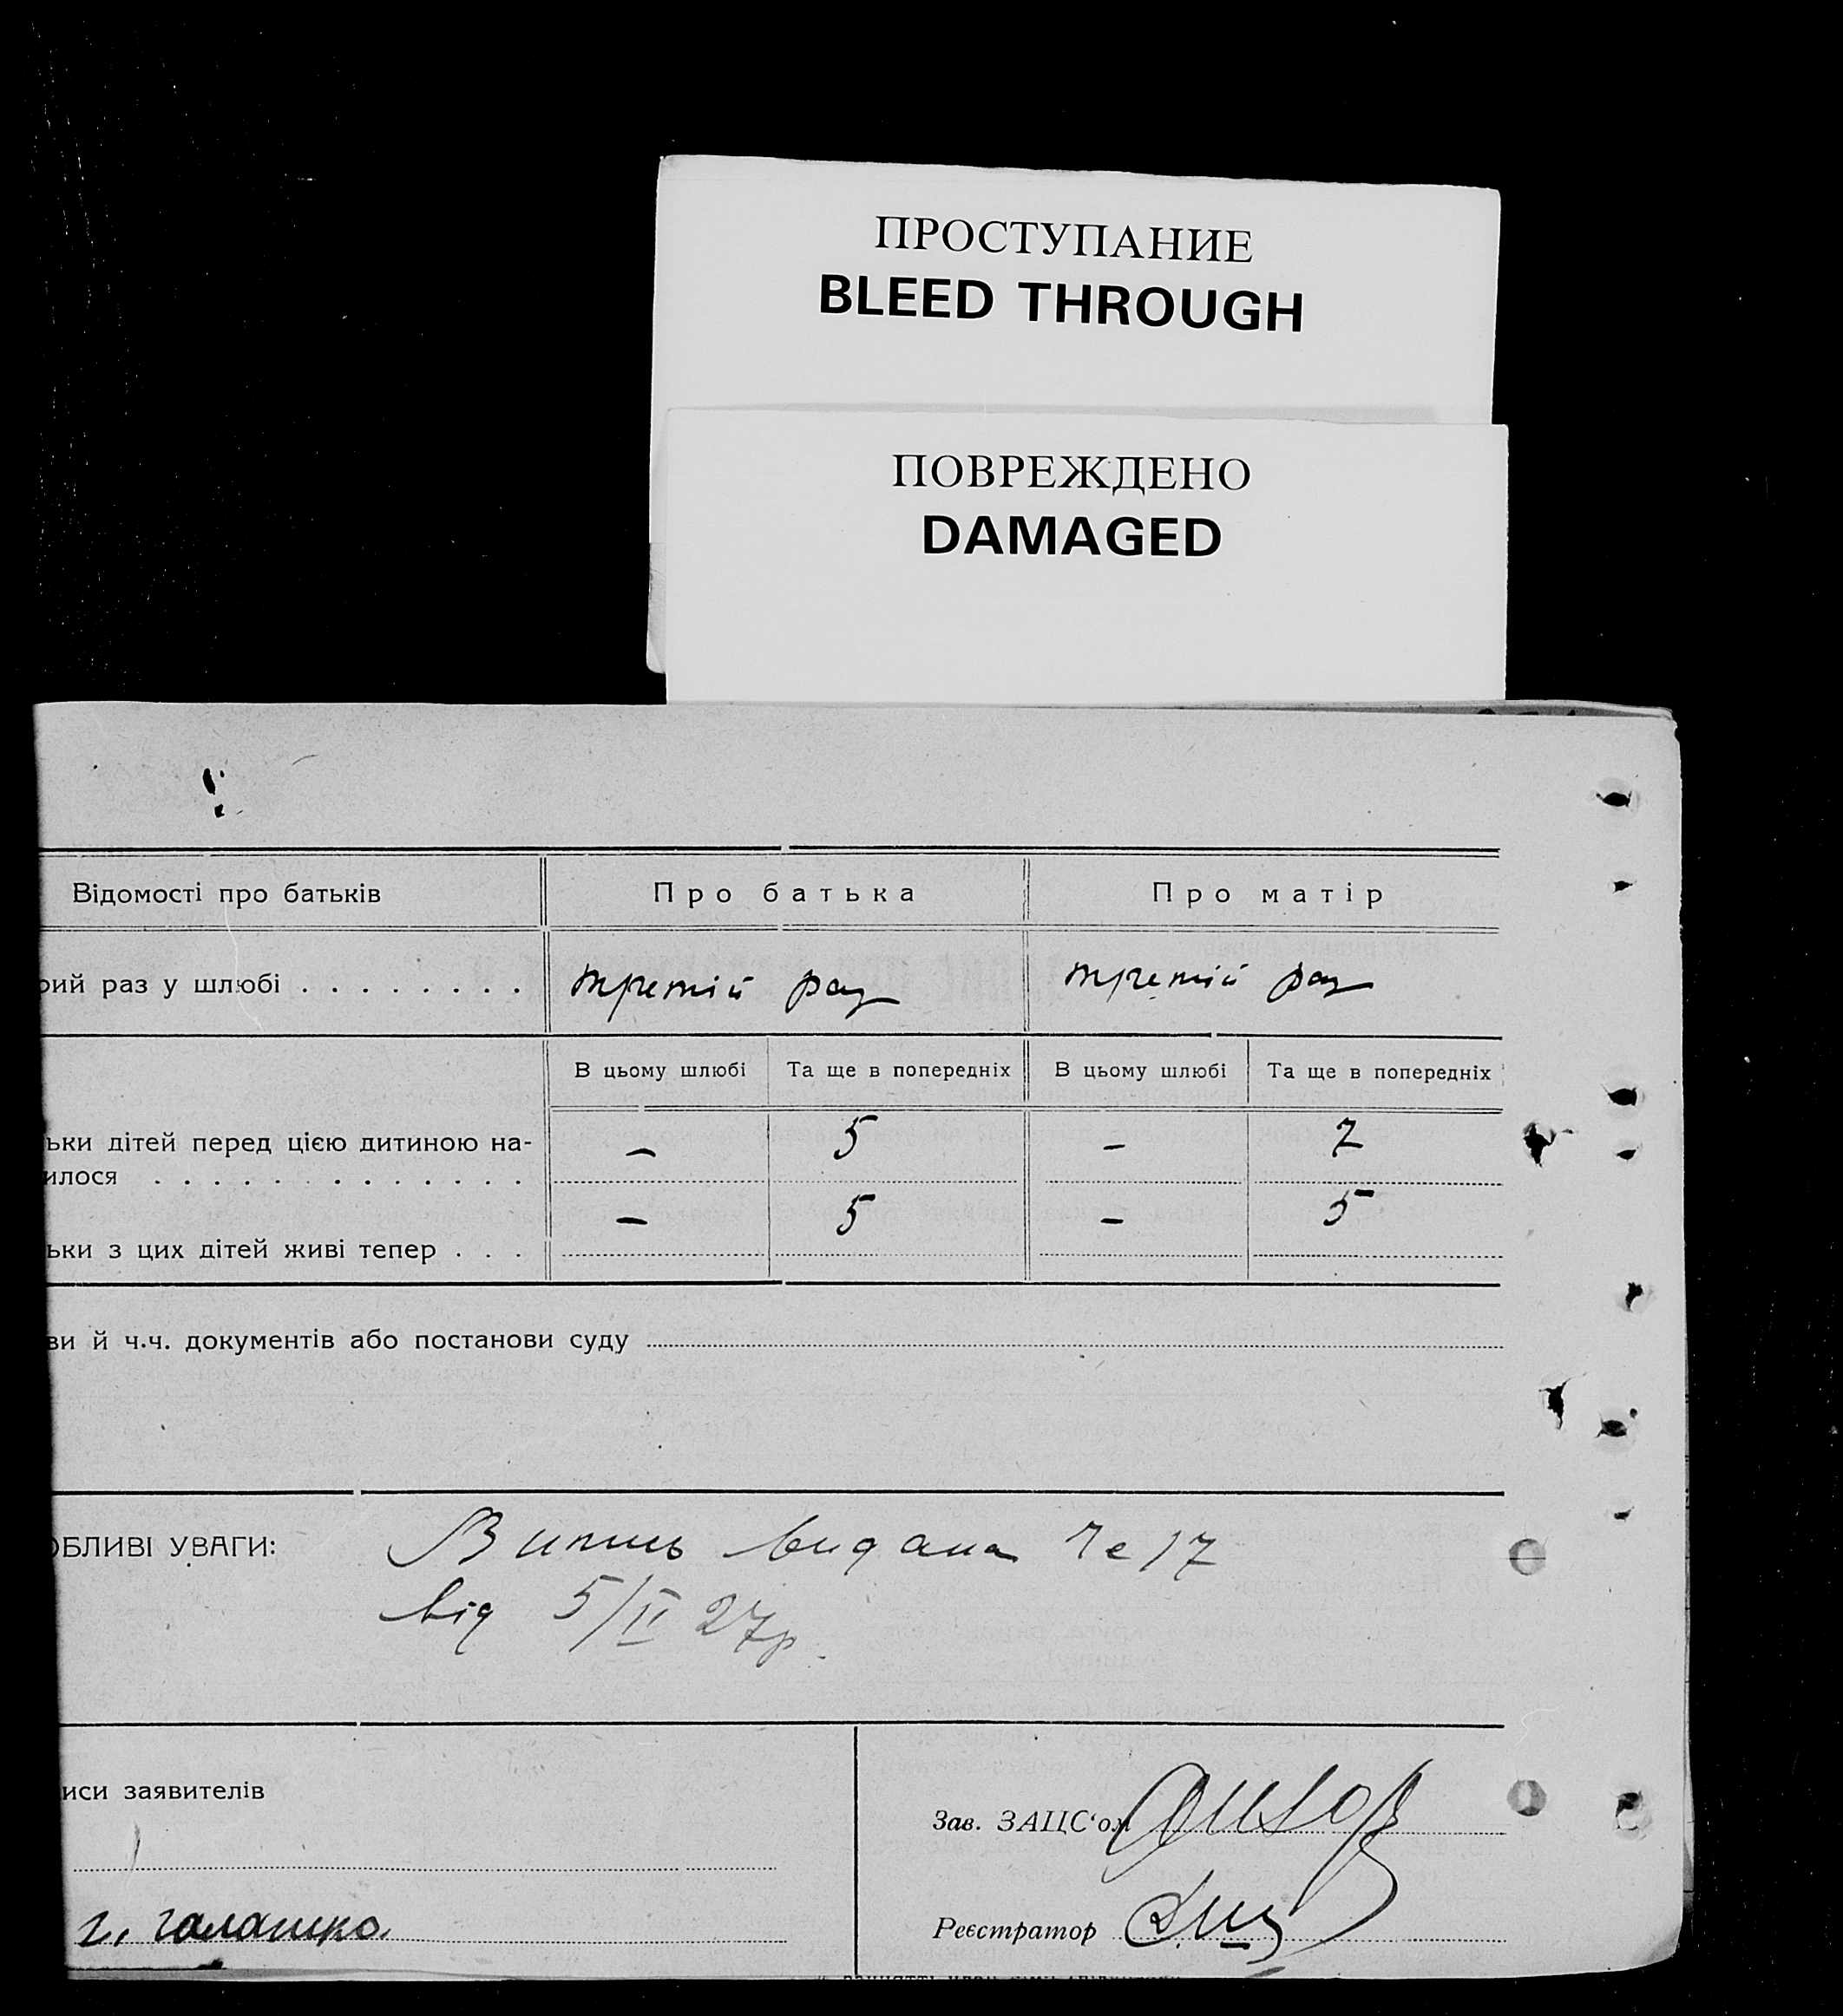 ПРОСТУПАНИЕ
BLEED THROUGH
ПОВРЕЖДЕНО
DAMAGED
Відомості про батьків Про батька Про матір
рий раз у шлюбі . . . . . . . . третій раз третій раз
В цьому шлюбі Та ще в попередніх В цьому шлюбі Та ще в попередніх
ьки дітей перед цією дитиною на- – 5 – 7
илося . . . . . . . . . . . . .
ьки з цих дітей живі тепер . . . – 5 – 5
ви й ч.ч. документів або постанови суду
ОБЛИВІ УВАГИ: Випись видана Че 17
від 5/II 27р.
иси заявителів
Зав. ЗАЦС‘ом
г. Галашко
Реєстратор